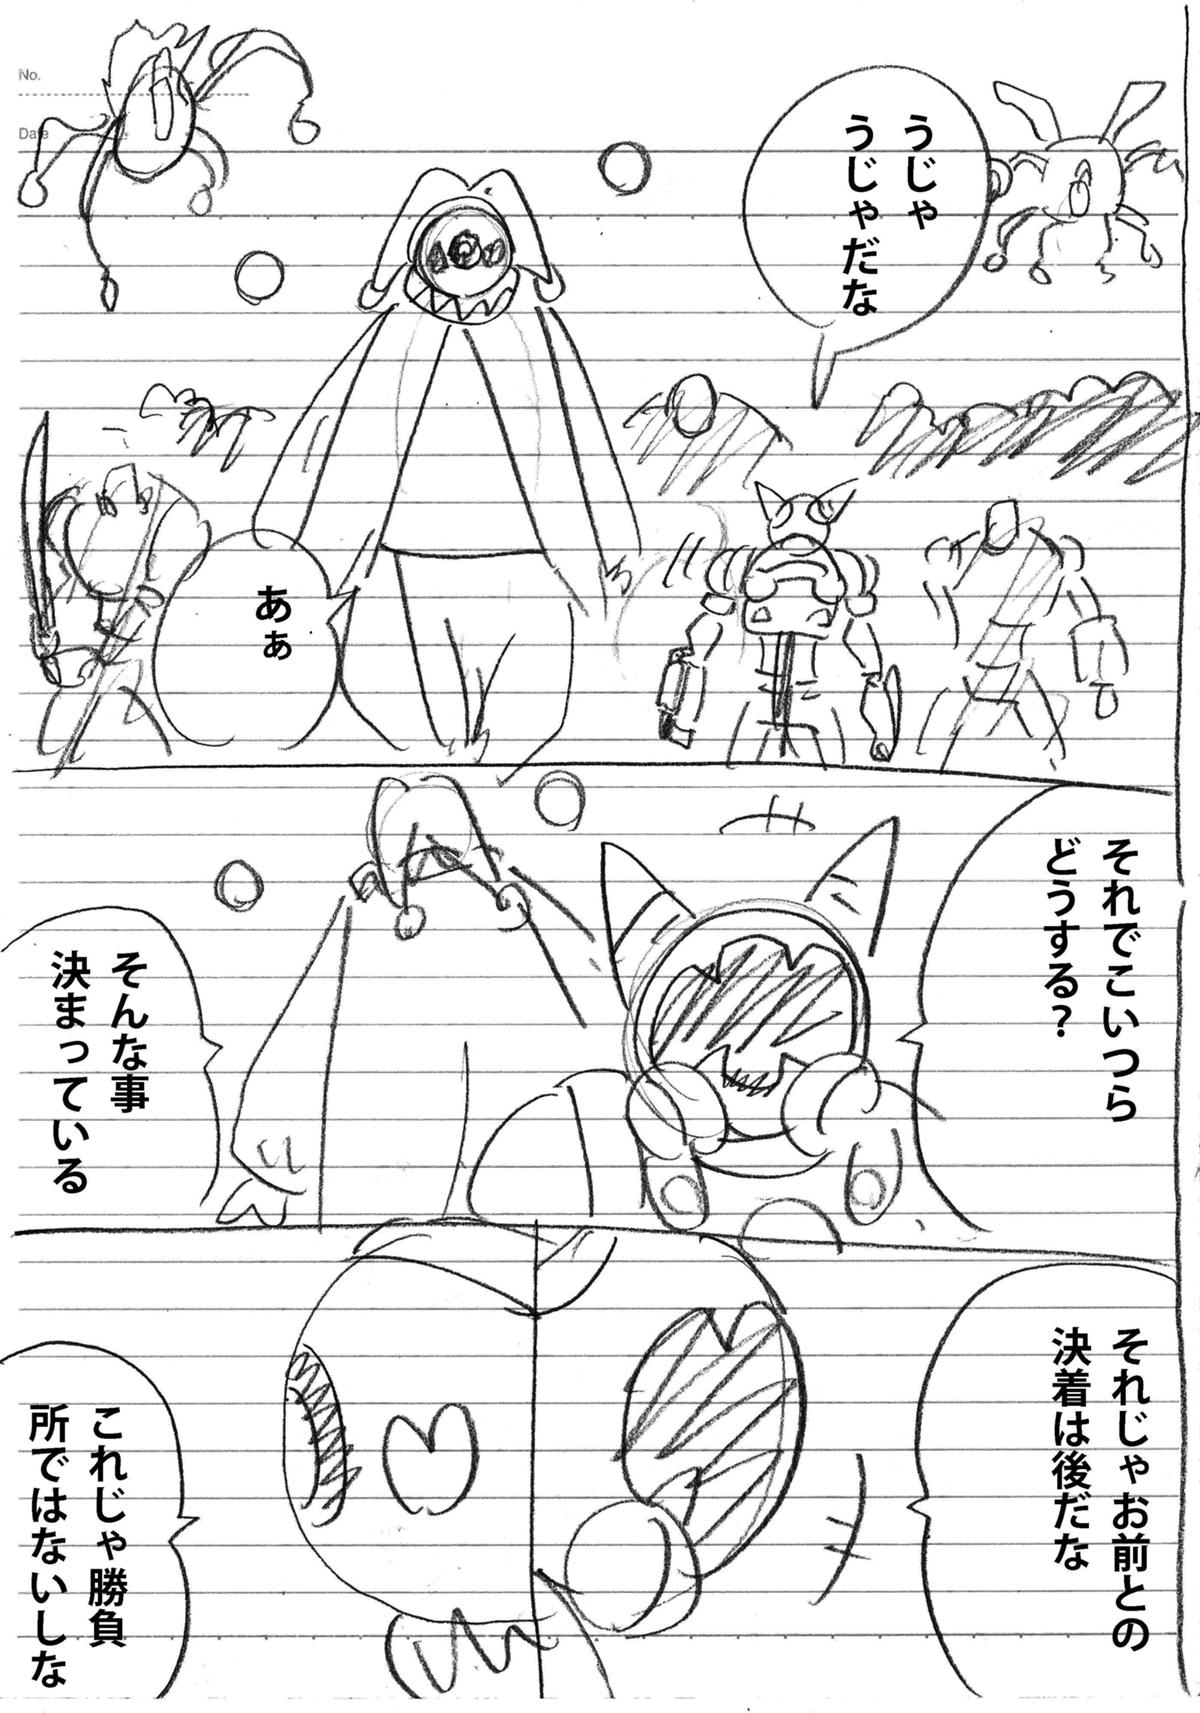 No.
Date
うじゃ
うじゃだな
あぁ
それでこいつら
どうする？
そんな事
決まっている
それじゃお前との
決着は後だな
これじゃ勝負
所ではないしな